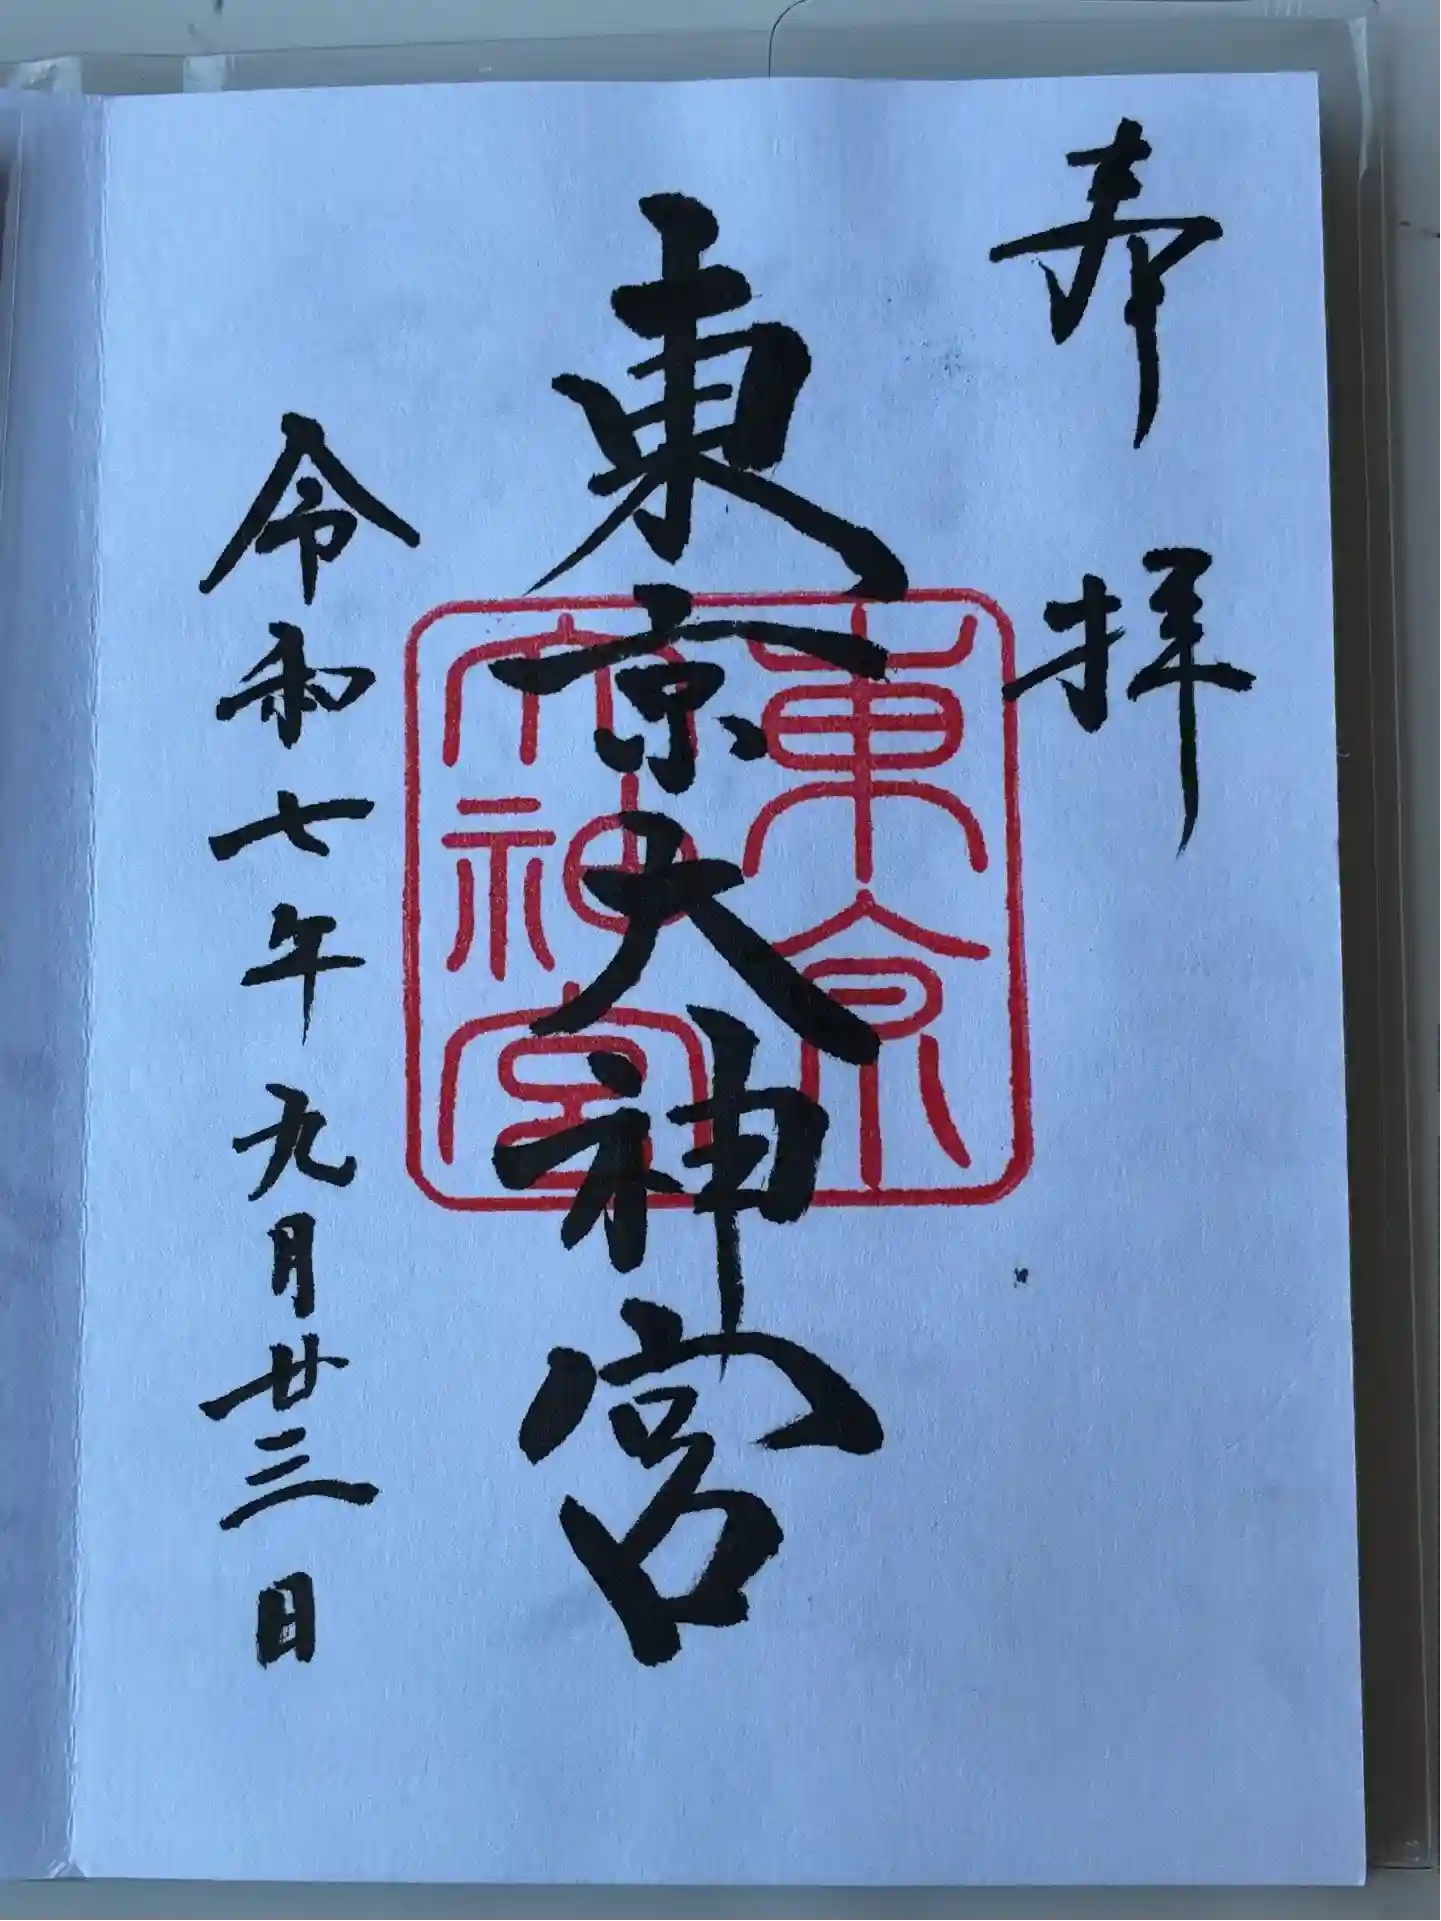 奉拝
東京大神宮
東京
大神宮
令和七年九月廿三日